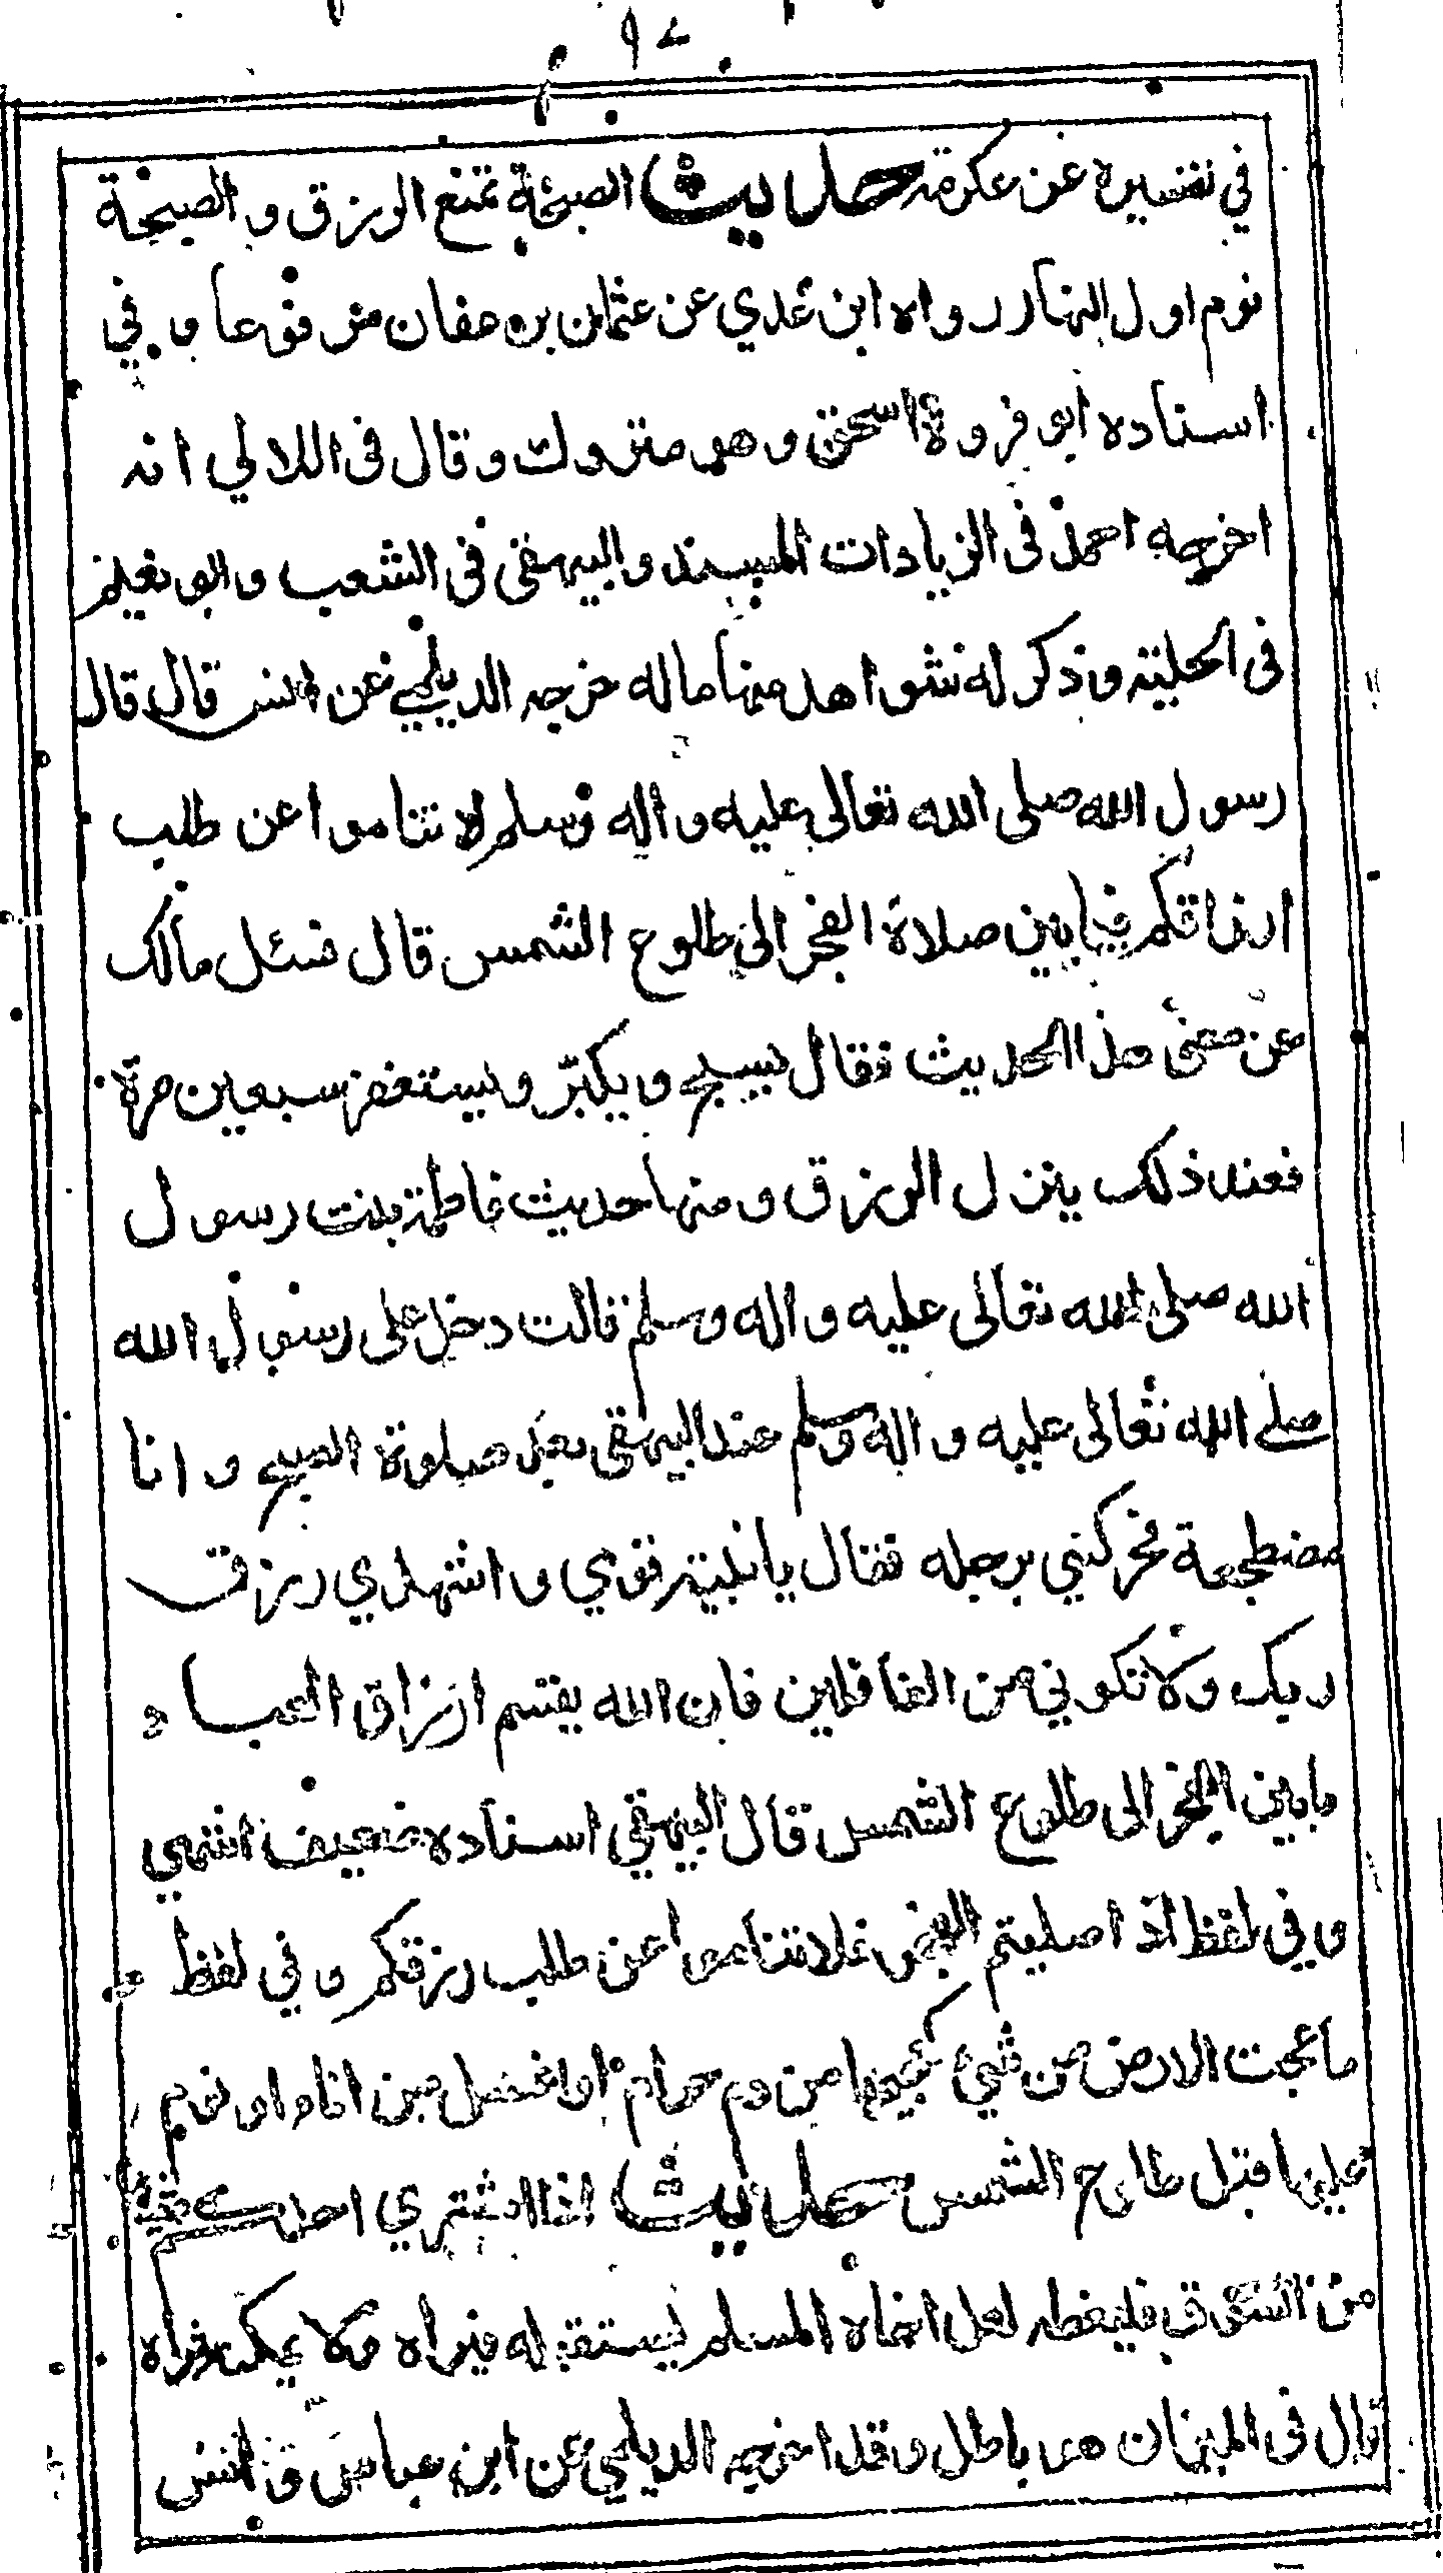 في تفسيره عن عكرمة حديث الصبحة تمنع الرزق والصبحة
نوم اول النهار رواه ابن عدي عن عثمان بن عفان مرفوعا وفي
اسناده ابو فروة اسحق وهو متروك وقال فى اللالي انه
اخرجه احمد فى الزيادات المسند والبيهقى فى الشعب وابو نعيم
فى الحلية وذكر له شواهد منها ماله خرجه الديلمي عن انس قال قال
رسول الله صلى الله تعالى عليه واله وسلم لا تناموا عن طلب
ارزاقكم فيما بين صلاة الفجر الى طلوع الشمس قال فسئل مالك
عن معنى هذا الحديث فقال يسبح ويكبّر ويستغفر سبعين مرة
فعند ذلك ينزل الرزق ومنها حديث فاطمة بنت رسول
الله صلى الله تعالى عليه واله وسلم قالت دخل على رسول الله
صلے الله تعالى عليه واله وسلم عند البيهقى بعد صلوة الصبح وانا
مضطجعة فحركني برجله فقال يا بنية قومي واشهدي رزق
ربك ولا تكوني من الغافلين فان الله يقسم ارزاق العباد
ما بين الفجر الى طلوع الشمس قال البيهقي اسناده ضعيف انتهى
وفي لفظ اذا صليتم الفجر فلا تناموا عن طلب رزقكم وفي لفظ
ما عجت الارض من شئ كعجيجها من دم حرام او اغتسل من اناء او نوم
عليها قبل طلوع الشمس حديث اذا اشترى احدكم
من السوق فليغطه لعل اخاه المسلم يستقبله فيراه ولا يمكنه شراه
قال فى الميزان هو باطل وقد اخرجه الديلمي عن ابن عباس وانس